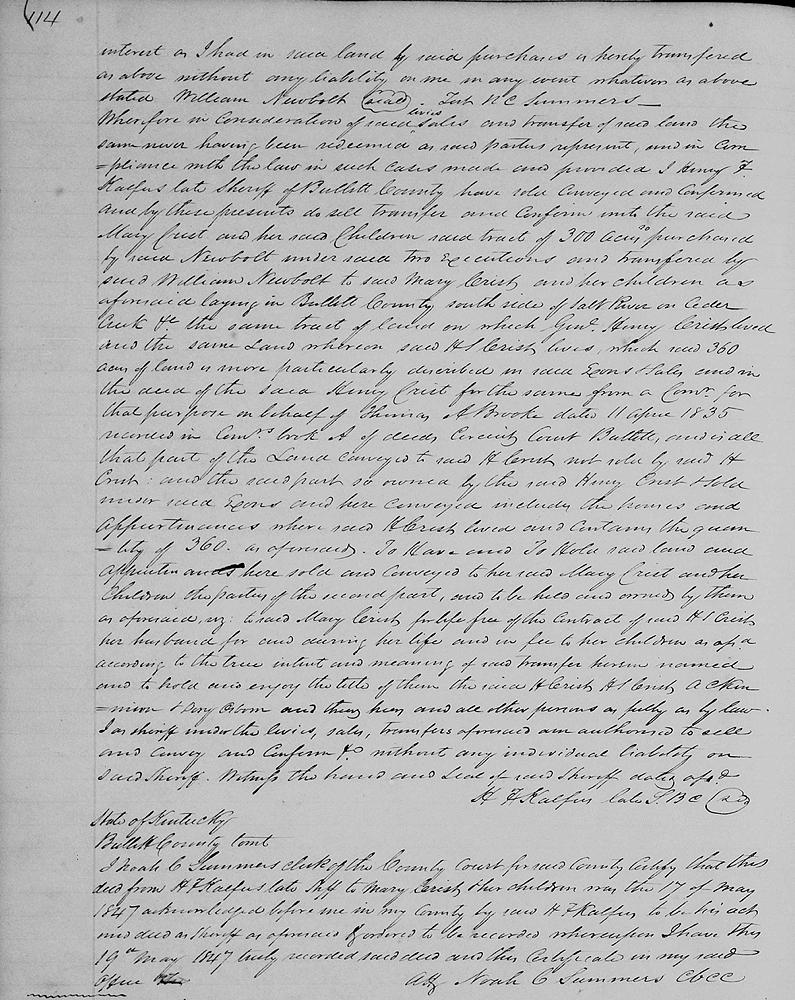 114
interest as I had in said land by said purchases is hereby transfered
as above without any liability on me in any event whatever as above
stated William Newbolt (seal). Test N C Summers
Wherefore in Consideration of said levies sales and transfer of said land the
same never having been redeemed as said parties represent, and in Com
=pliance with the law in such cases made and provided I Henry F
Kalfus late Sheriff of Bullitt County have sold Conveyed and Confirmed
and by these presents do sell transfer and Confirm unto the said
Mary Crist and her said Children said tract of 300 acres purchased
by said Newbolt under said two Executions and transfered by
said William Newbolt to said Mary Crist and her children as
aforesaid laying in Bullitt County south side of Salt River on Ceder
Creek &c the same tract of land on which Genl. Henry Crist lived
and the same Land whereon said H S Crist lives, which said 360
acres of land is more particularly discribed in said Exons & sales and in
the deed of the said Henry Crist for the same from a Comr. for
that purpose on behalf of Thomas A Brooke dated 11 april 1835
recorded in Comrs book A of deeds Circuit Court Bullitt, and is all
that part of the Land conveyed to said H Crist not sold by said H
Crist: and the said part so owned by the said Henry Crist & sold
under said Exons and here conveyed includes the houses and
appurtenances where said H Crist lived and Contains the quan
=tity of 360. as aforesaid. To Have and To Hold said land and
appurtenances here sold and Conveyed to her said Mary Crist and her
Children the parties of the second part, and to be held and owned by them
as aforesaid, viz: to said Mary Crist for life free of the Contract of said H S Crist
her husband for and during her life and in fee to her children as afsd
according to the true intent and meaning of said transfer herein named
and to hold and enjoy the title of them the said H Crist H S Crist
and their heirs and all other persons as fully as by law.
I as sheriff under the levies, sales, transfers aforesaid am authorised to sell
and convey and Confirm &c without any individual liability on
said Sheriff. Witness the hand and Seal of said Sheriff date afsd
H F Kalfus late S. B C (seal)
State of Kentucky
Bullitt County towit
I Noah C Summers clerk of the County Court for said County Certify that this
deed from H F Kalfus late Shff to Mary Crist & her children was the 17 of May
1847 acknowledged before me in my County by said H F Kalfus to be his act
and deed as Sheriff as aforesaid & ordered to be recorded whereupon I have this
19th May 1847 truly recorded said deed and this Certificate in my said
office
Att Noah C Summers CBCC